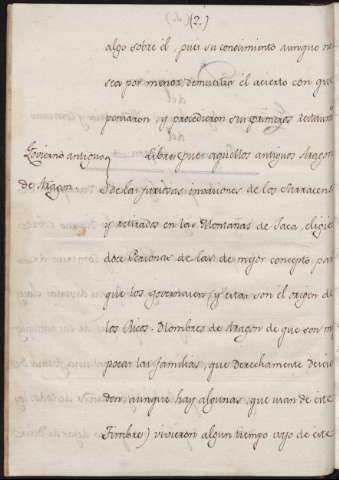 (2.)
algo sobre él, pues su conocimiento aunque no
sea por menor demuestra el acierto con que
pensaron, y procedieron sus primeros
Govierno antiguo
de Aragon
Libres pues aquellos antiguos Aragon
de las furiosas invasiones de los Sarracen
y retirados en las Montañas de Jaca, eligie
doce Personas de las de mejor concepto, par
que los governasen, (y estas son el origen de
los Ricos-Hombres de Aragon de que son m
pocas las familias, que derechamente decie
den, aunque hay algunas, que usan de este
Timbre) vivieron algun tiempo vajo de este